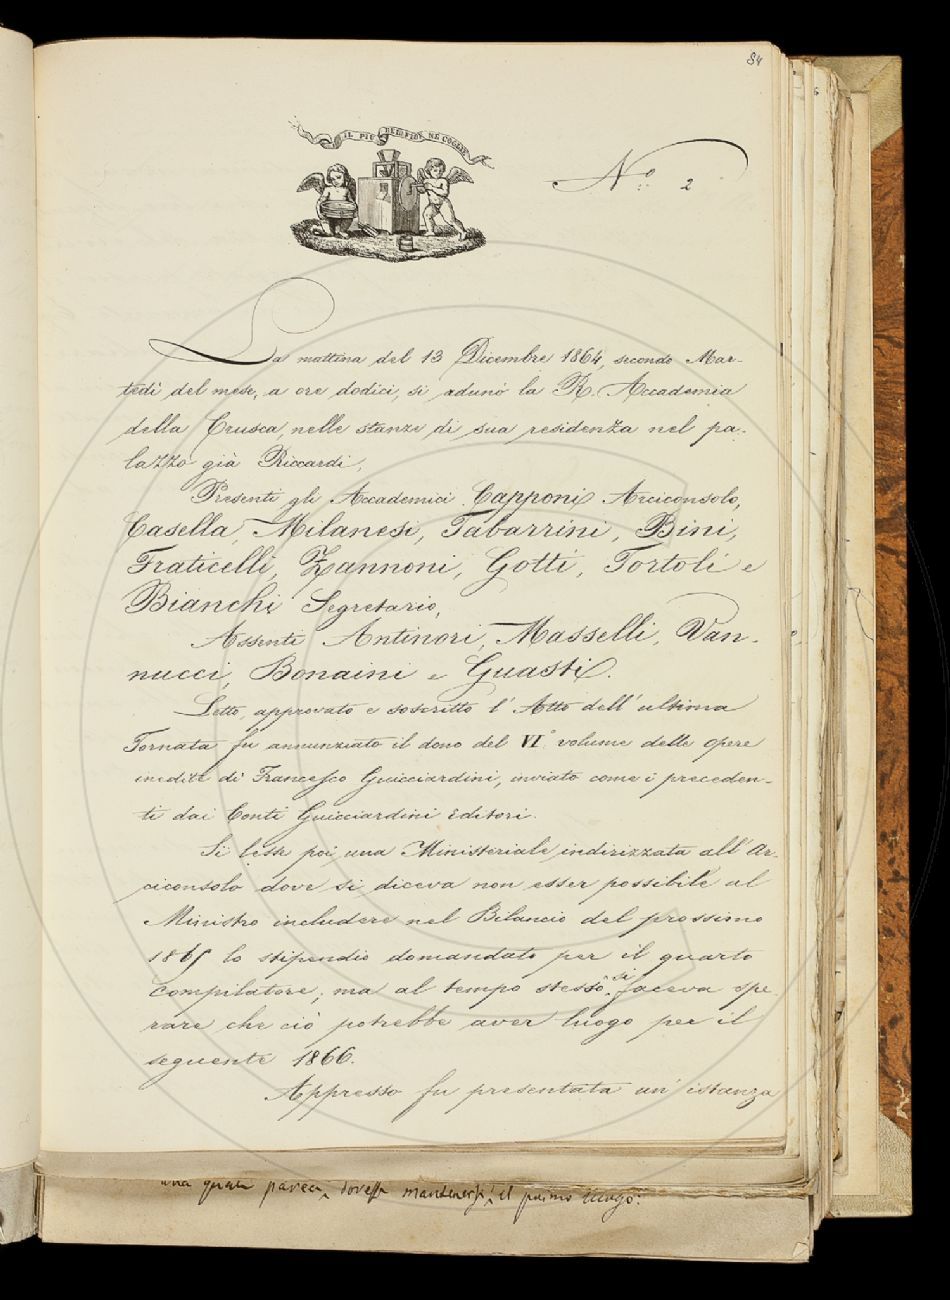 84
IL PIÙ BEL FIOR NE COGLIE
N.o 2
La mattina del 13 Dicembre 1864, secondo Mar-
tedì del mese, a ore dodici, si adunò la R. Accademia
della Crusca, nelle stanze di sua residenza nel pa-
lazzo già Riccardi.
Presenti gli Accademici: Capponi Arciconsolo,
Casella, Milanesi, Tabarrini, Bini,
Fraticelli, Zannoni, Gotti, Tortoli e
Bianchi Segretario,
Assenti Antinori, Masselli, Van-
nucci, Bonaini e Guasti.
Letto, approvato e soscritto l'Atto dell'ultima
Tornata fu annunziato il dono del VI.° volume delle opere
inedite di Francesco Guicciardini, inviato come i preceden-
ti dai Conti Guicciardini Editori.
Si lesse poi una Ministeriale indirizzata all'Ar-
ciconsolo dove si diceva non esser possibile al
Ministro includere nel Bilancio del prossimo
1865 lo stipendio domandato per il quarto
compilatore; ma al tempo stesso si faceva spe-
rare che ciò potrebbe aver luogo per il
seguente 1866.
Appresso fu presentata un'istanza
una parea dovesse mantenersi il primo luogo: